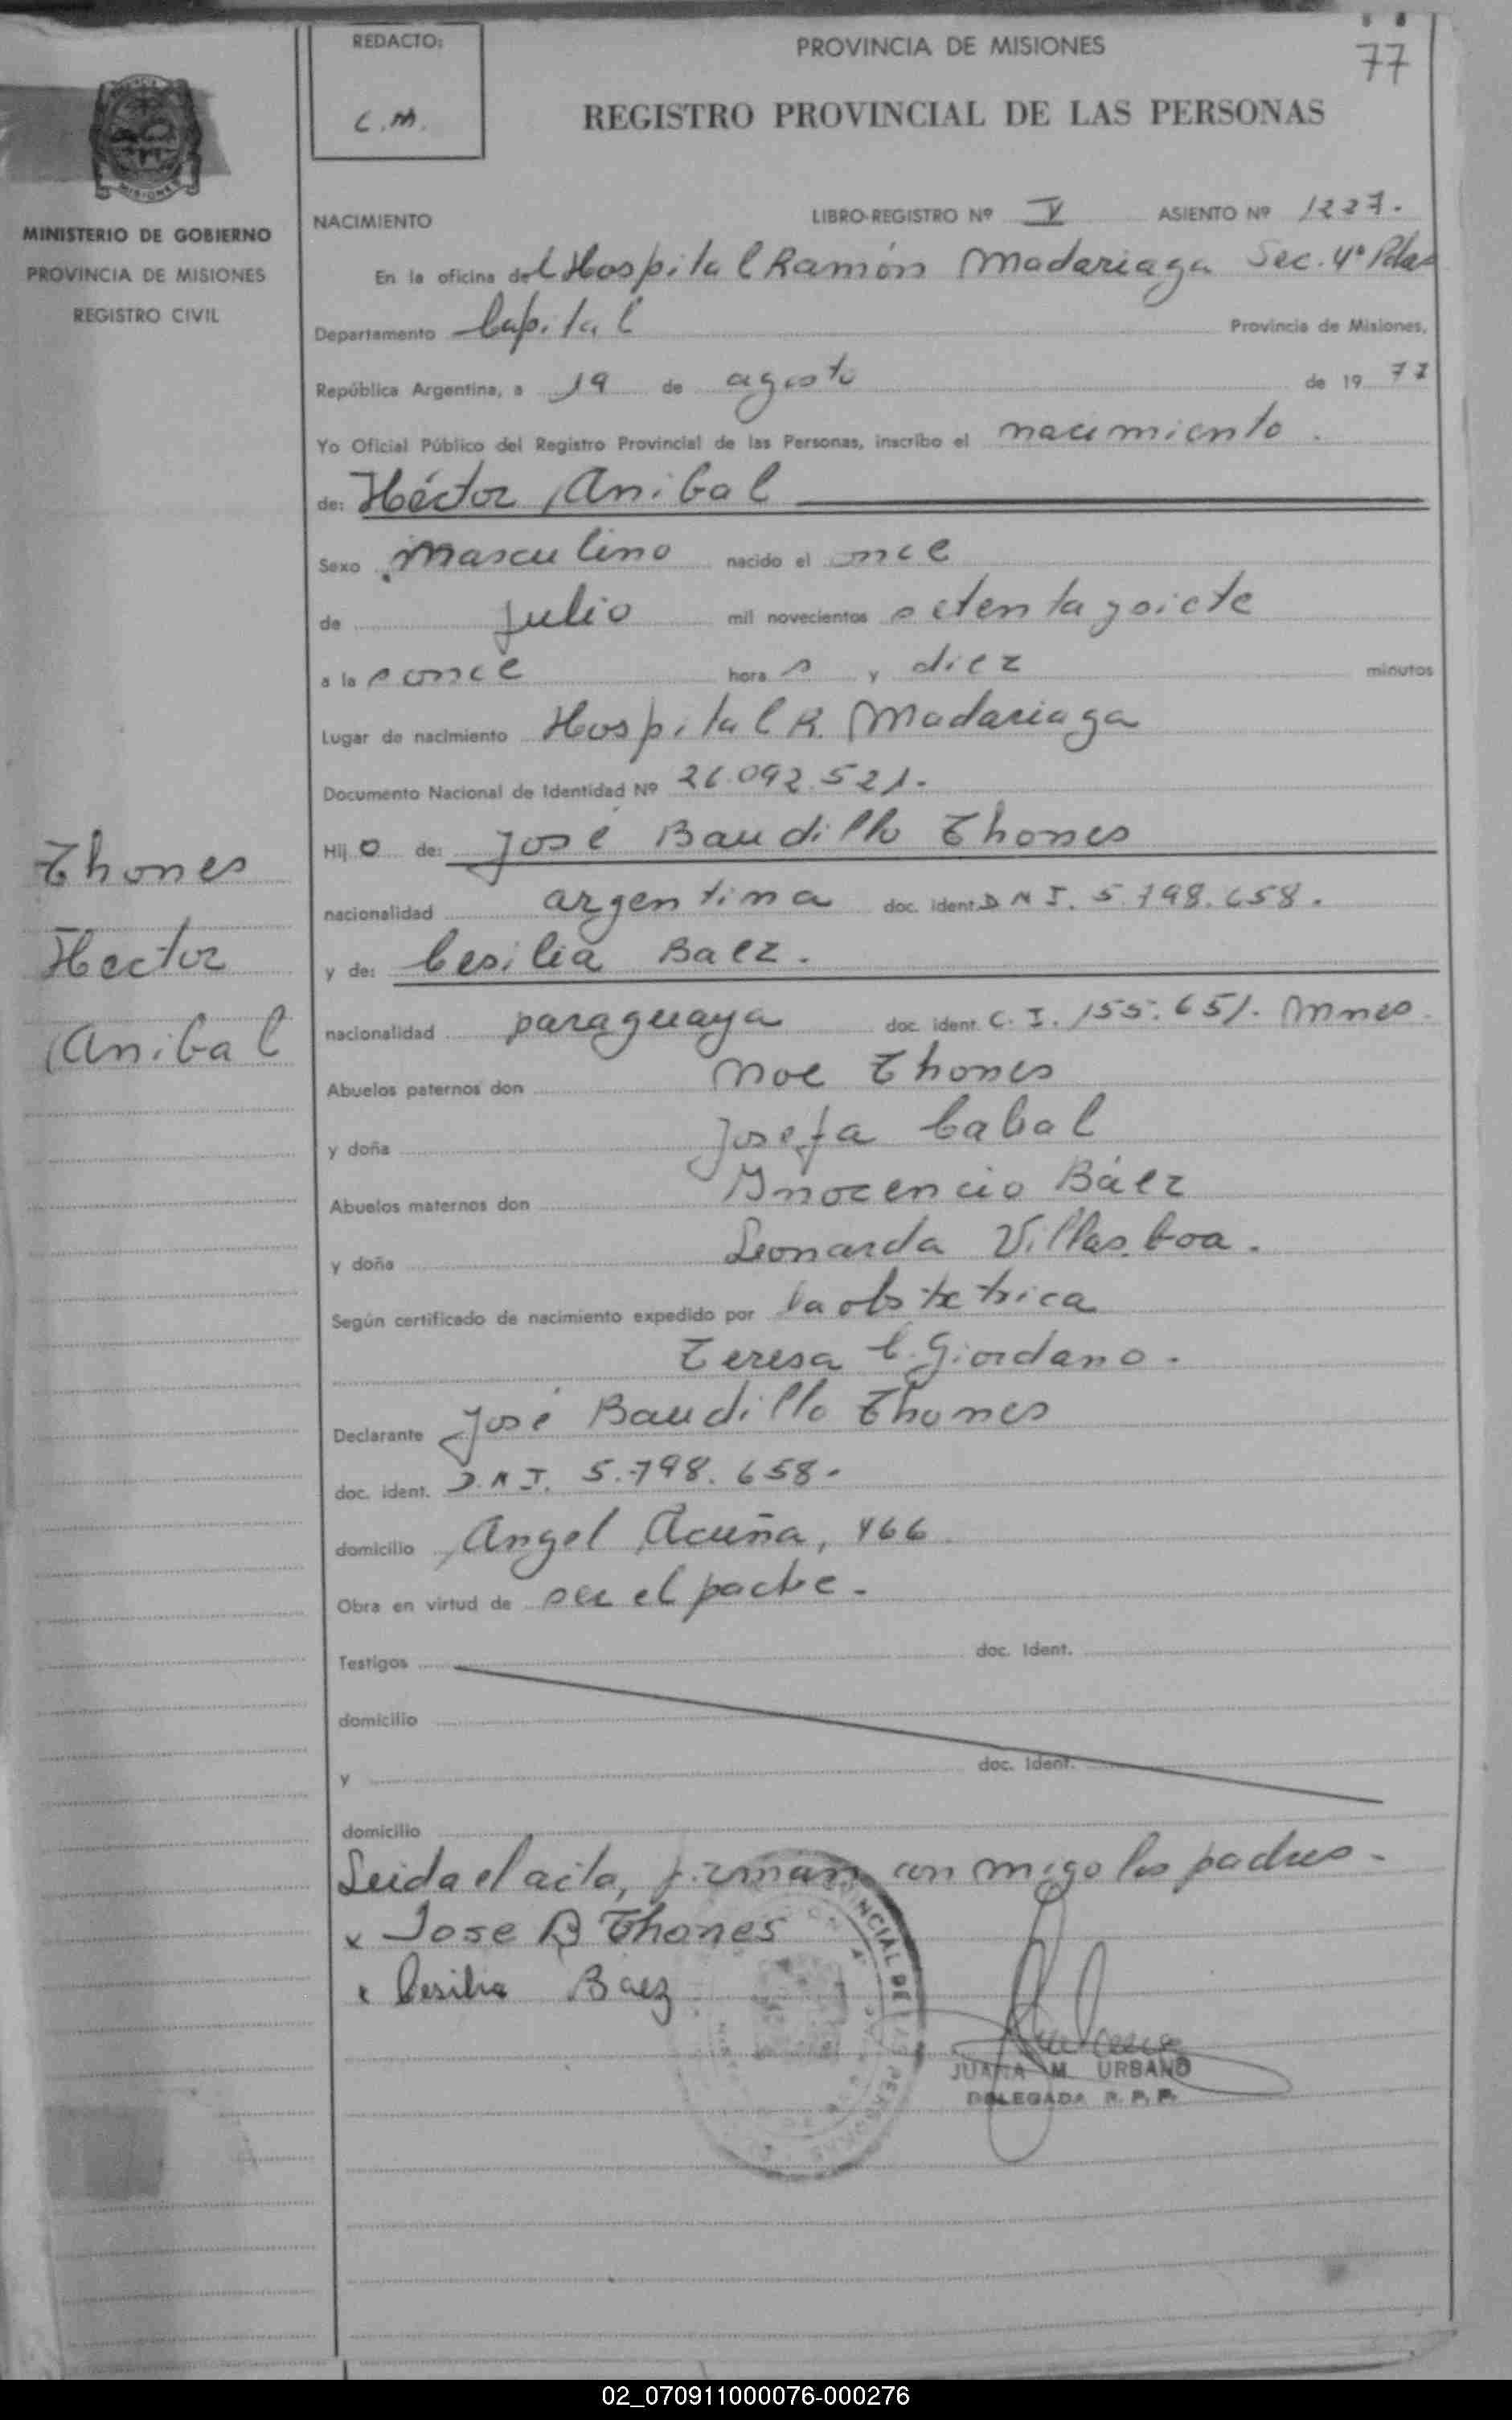 REDACTO:
C.M.
PROVINCIA DE MISIONES
77
REGISTRO PROVINCIAL DE LAS PERSONAS
MINISTERIO DE GOBIERNO
PROVINCIA DE MISIONES
REGISTRO CIVIL
NACIMIENTO
LIBRO-REGISTRO Nº V ASIENTO Nº 1227.
En la oficina del Hospital Ramón Madariaga Sec. 4ª Pdas
Departamento Capital Provincia de Misiones,
República Argentina, a 19 de agosto de 19 77
Yo Oficial Público del Registro Provincial de las Personas, inscribo el nacimiento.
de: Héctor Anibal
Sexo Masculino nacido el once
de julio mil novecientos setenta y siete
a las once horas y diez minutos
Lugar de nacimiento Hospital R. Madariaga
Documento Nacional de Identidad Nº 26.092.521.
Hijo de: José Baudillo Thones
nacionalidad argentina doc. ident. D N I. 5.798.658.
y de: Cesilia Baez.
nacionalidad paraguaya doc. ident. C. I. 155.651. Mnes.
Abuelos paternos don Noe Thones
y doña Josefa Cabal
Abuelos maternos don Inocencio Báez
y doña Leonarda Villasboa.
Según certificado de nacimiento expedido por la obstetrica
Teresa C. Giordano.
Declarante José Baudillo Thones
doc. ident. D.N.I. 5.798.658.
domicilio Angel Acuña, 466
Obra en virtud de ser el padre.
Testigos doc. Ident.
domicilio
y doc. Ident.
domicilio
Leida el acta, firman con migo los padres.
x Jose B Thones
x Cesilia Baez
JUANA M. URBANO
DELEGADA R. P. P.
Thones
Hector
Anibal
02_070911000076-000276